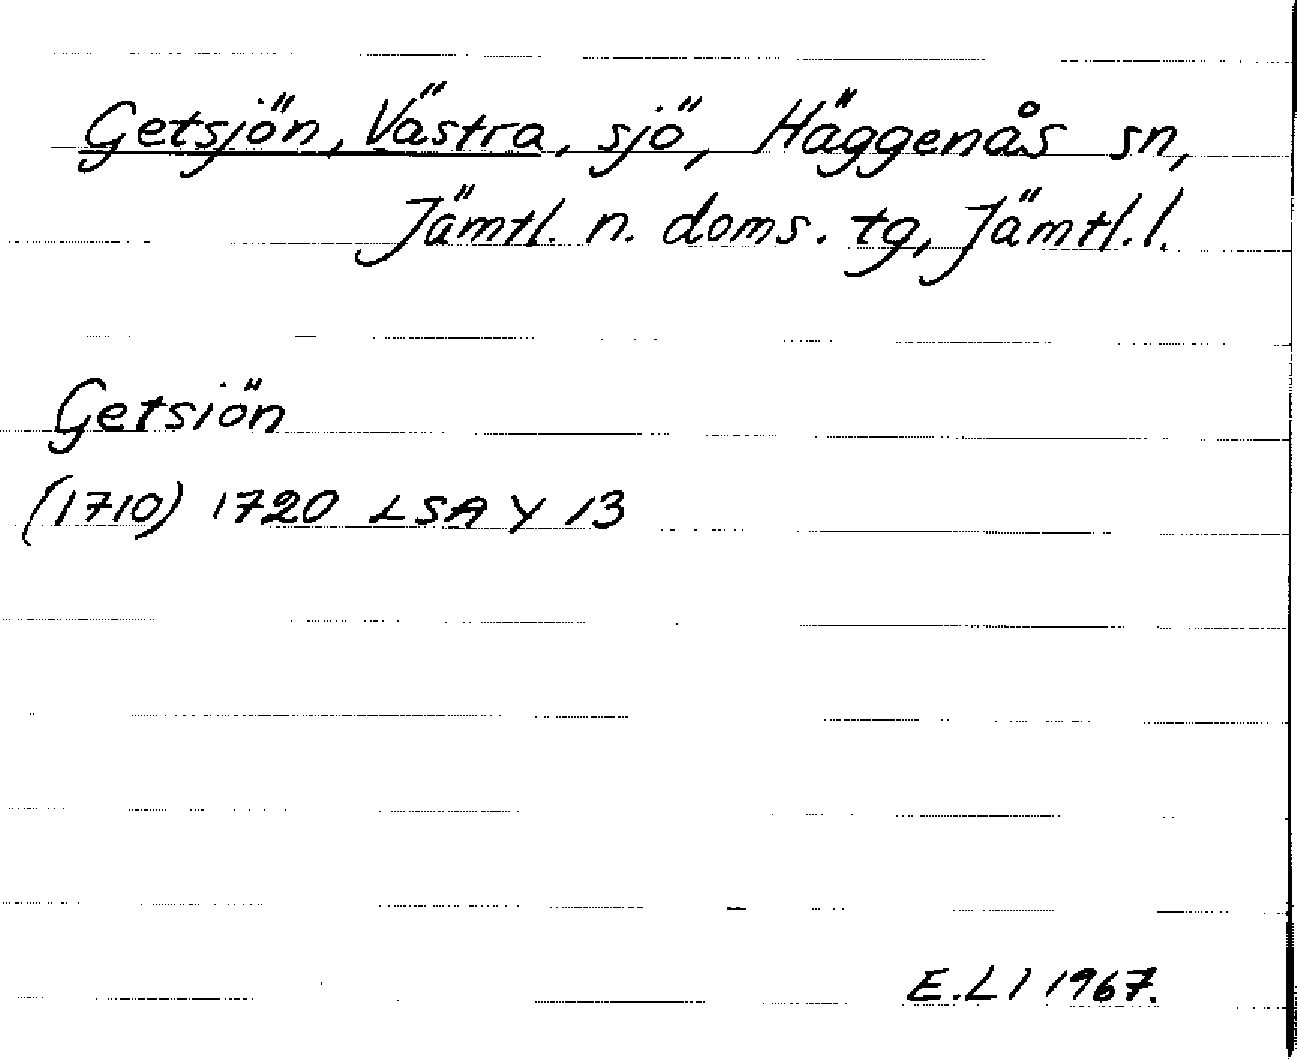 Getsjön, Västra, sjö, Häggenås sn,
Jämtl. n. doms. tg, Jämtl. l.
Getsiön
(1710) 1720 LSA Y 13
E.Ll 1967.